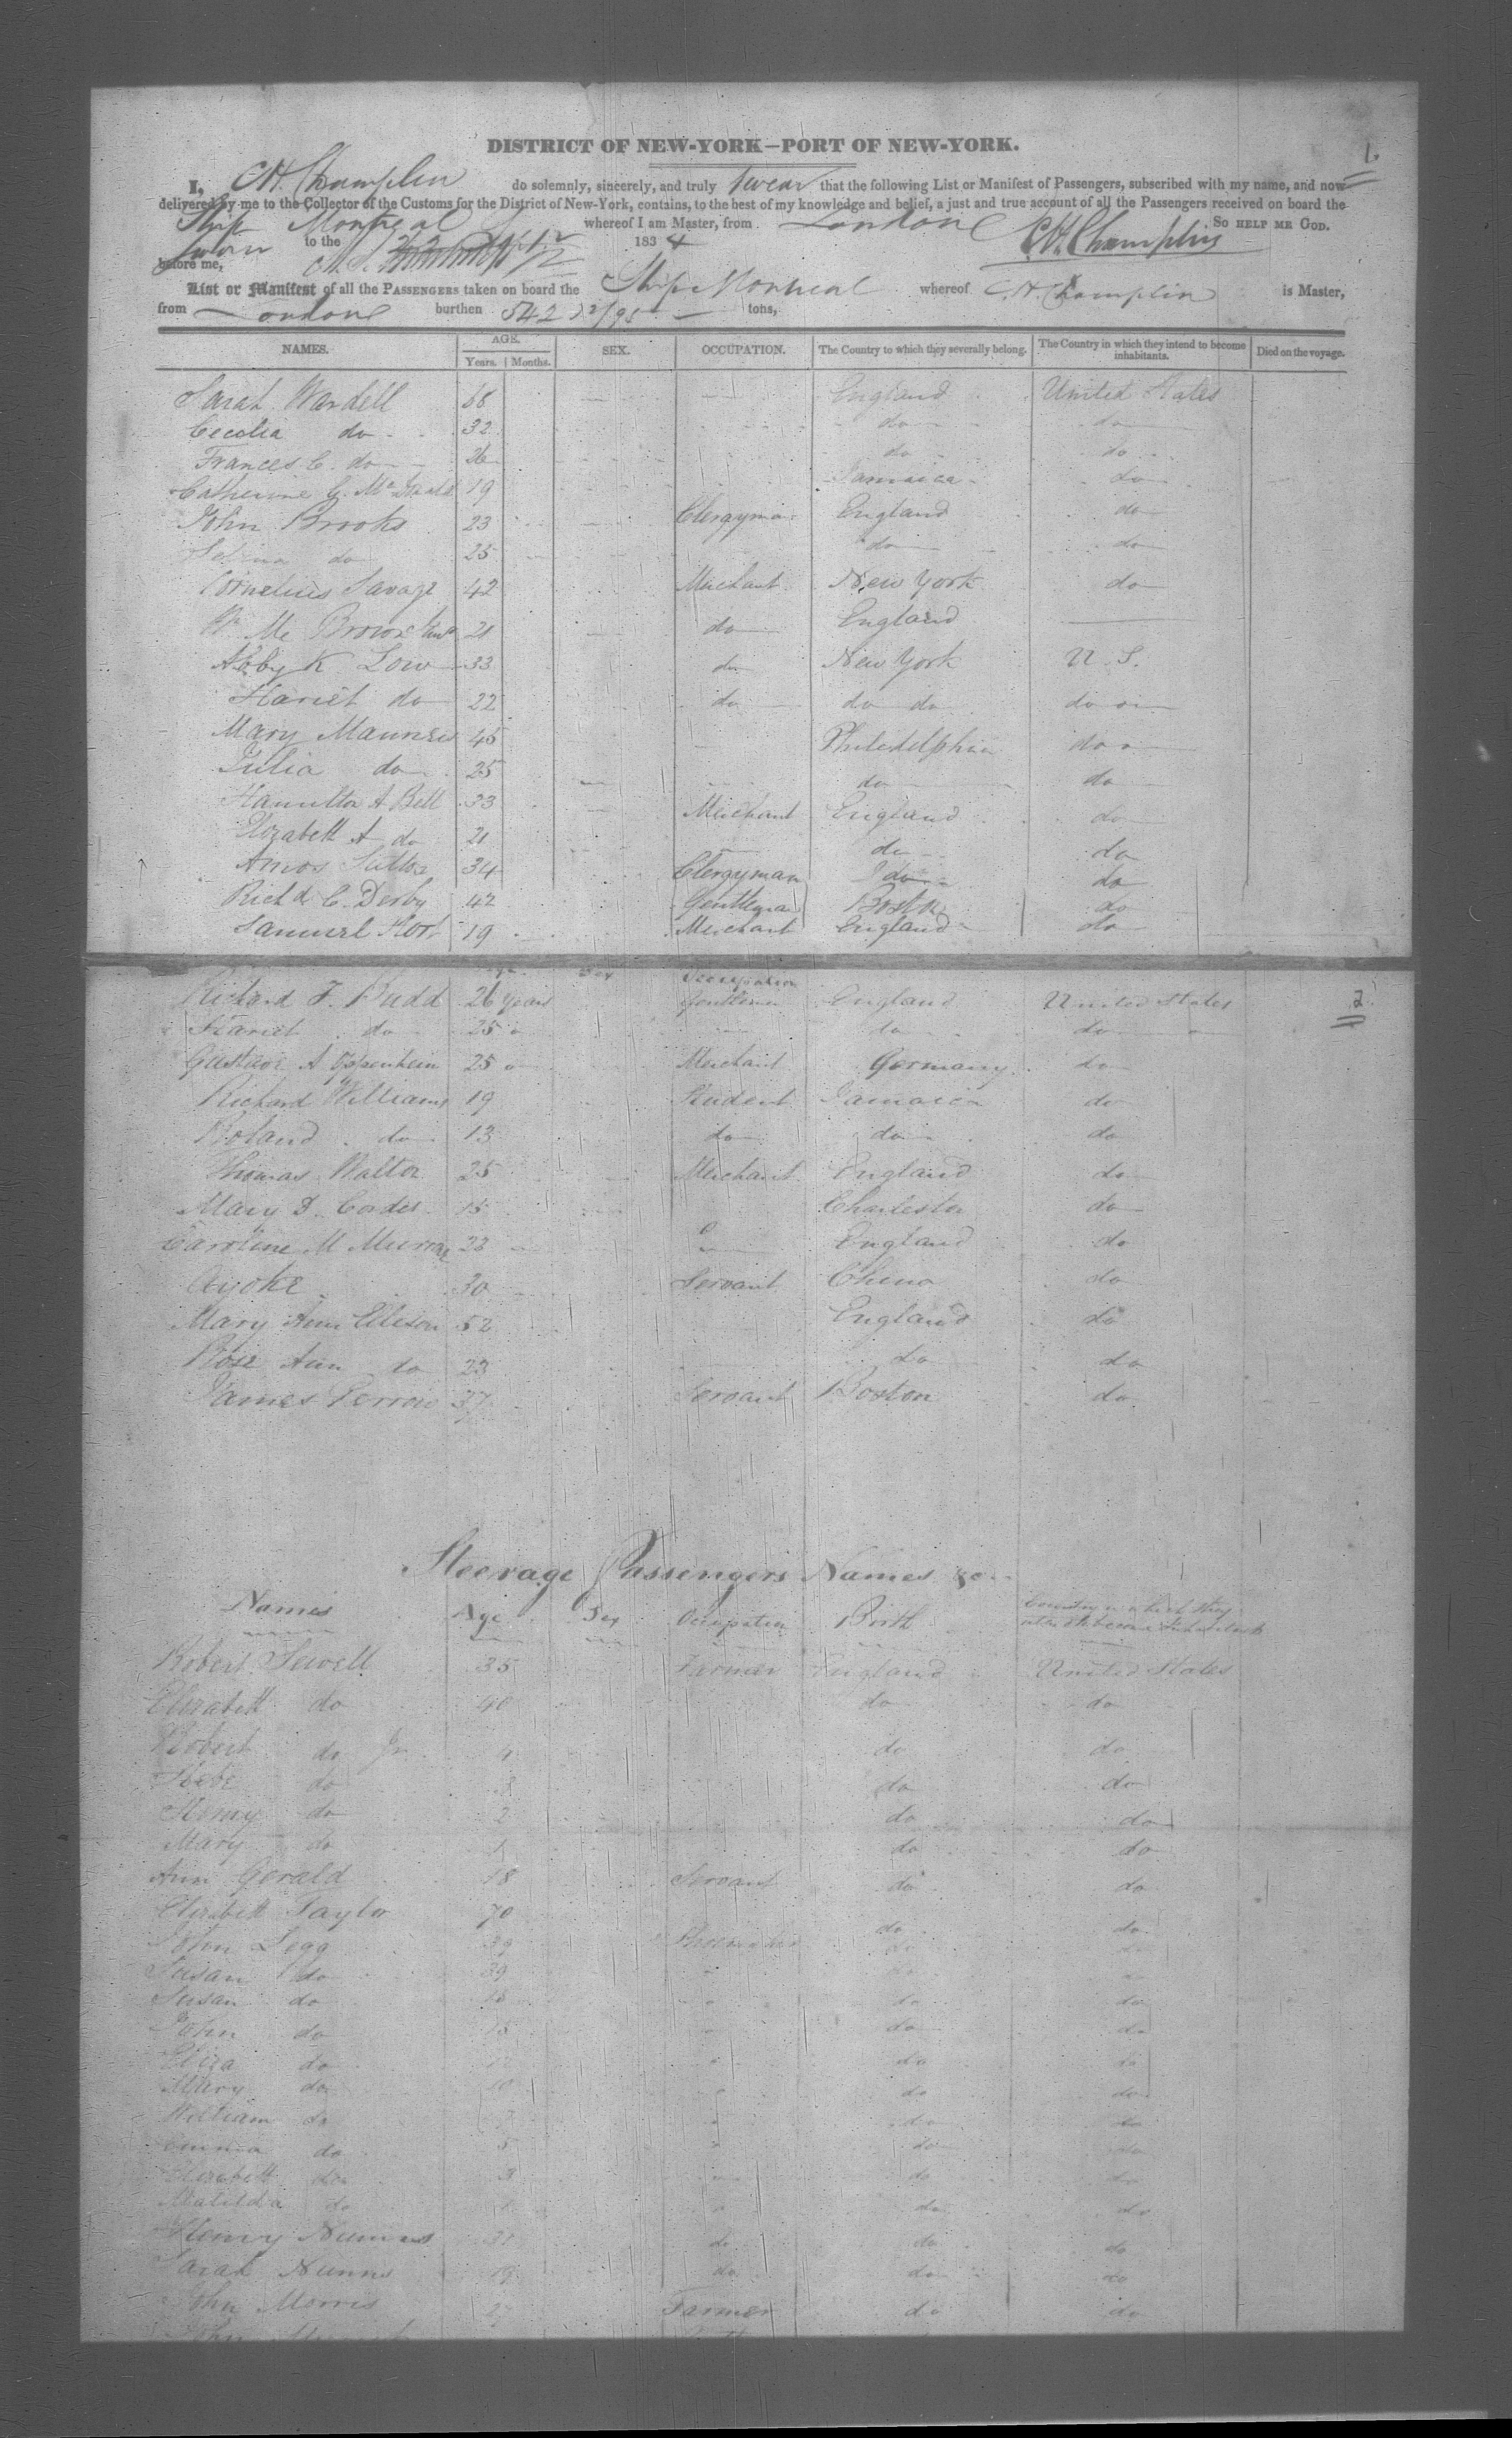 1
DISTRICT OF NEW-YORK—PORT OF NEW-YORK.
I, C.H. Champlin do solemnly, sincerely, and truly swear that the following List or Manifest of Passengers, subscribed with my name, and now
delivered by me to the Collector of the Customs for the District of New-York, contains, to the best of my knowledge and belief, a just and true account of all the Passengers received on board the
Ship Montreal whereof I am Master, from London So HELP ME GOD.
Sworn to the 1834 C.H. Champlin
before me,
List or Manifest of all the PASSENGERS taken on board the Ship Montreal whereof C.H. Champlin is Master,
from London burthen 542 12/95 tons,
NAMES. AGE. SEX. OCCUPATION. The Country to which they severally belong. The Country in which they intend to become inhabitants. Died on the voyage.
Years. Months.
Sarah Wardell 68 England United States
Cecelia do 32 do do
Frances C. do 26 do do
Catherine G. 19 Jamaica do
John Brooks 23 Clergyman England do
do 25 do do
Cornelius Savage 42 Merchant New York do
21 do England
Abby K Low 33 do New York U.S.
Hariet do 22 do do do do
Mary 45 Philadelphia do
Julia do 25 do do
Hamilton A Bell 33 Merchant England do
Elizabeth A do 21 do do
Amos Sutton 34 Clergyman do do
Richd C. Derby 42 Gentleman Boston do
Samuel Hort 19 Merchant England do
Age Sex Occupation
2
Richard F. Pudd 26 years Gentleman England United States
Hariet do 25 do do
Gustave A Oppenheim 25 Merchant Germany do
Richard Williams 19 Student Jamaica do
Roland do 13 do do do
Thomas Walton 25 Merchant England do
Mary D. Cordes 15 Charleston do
Caroline M Murray 23 England do
Ayoke 30 Servant China do
Mary Ann Elleson 52 England do
Rose Ann do 23 do do
James Perrow 37 Servant Boston do
Steerage Passengers Names &c.
Names Age Sex Occupation Birth Country in which they
intend to become Inhabitants
Robert Sewell 35 Farmer England United States
Elizabeth do 40 do do
Robert do Jr 4 do do
do do do
Henry do 2 do do
Mary do 1 do do
Ann Gerald 18 Servant do do
Elizabeth Taylor 70 do do
John Legg 39 do do
Susan do 39 do do
Susan do 18 do do
John do 15 do do
Eliza do do do
Mary do 10 do do
William do 7 do do
Emma do 5 do do
Elizabeth do 3 do do
Matilda do do do
Henry Nunns 31 do do do
Sarah Nunns 19 do do do
John Morris 27 Farmer do do
John